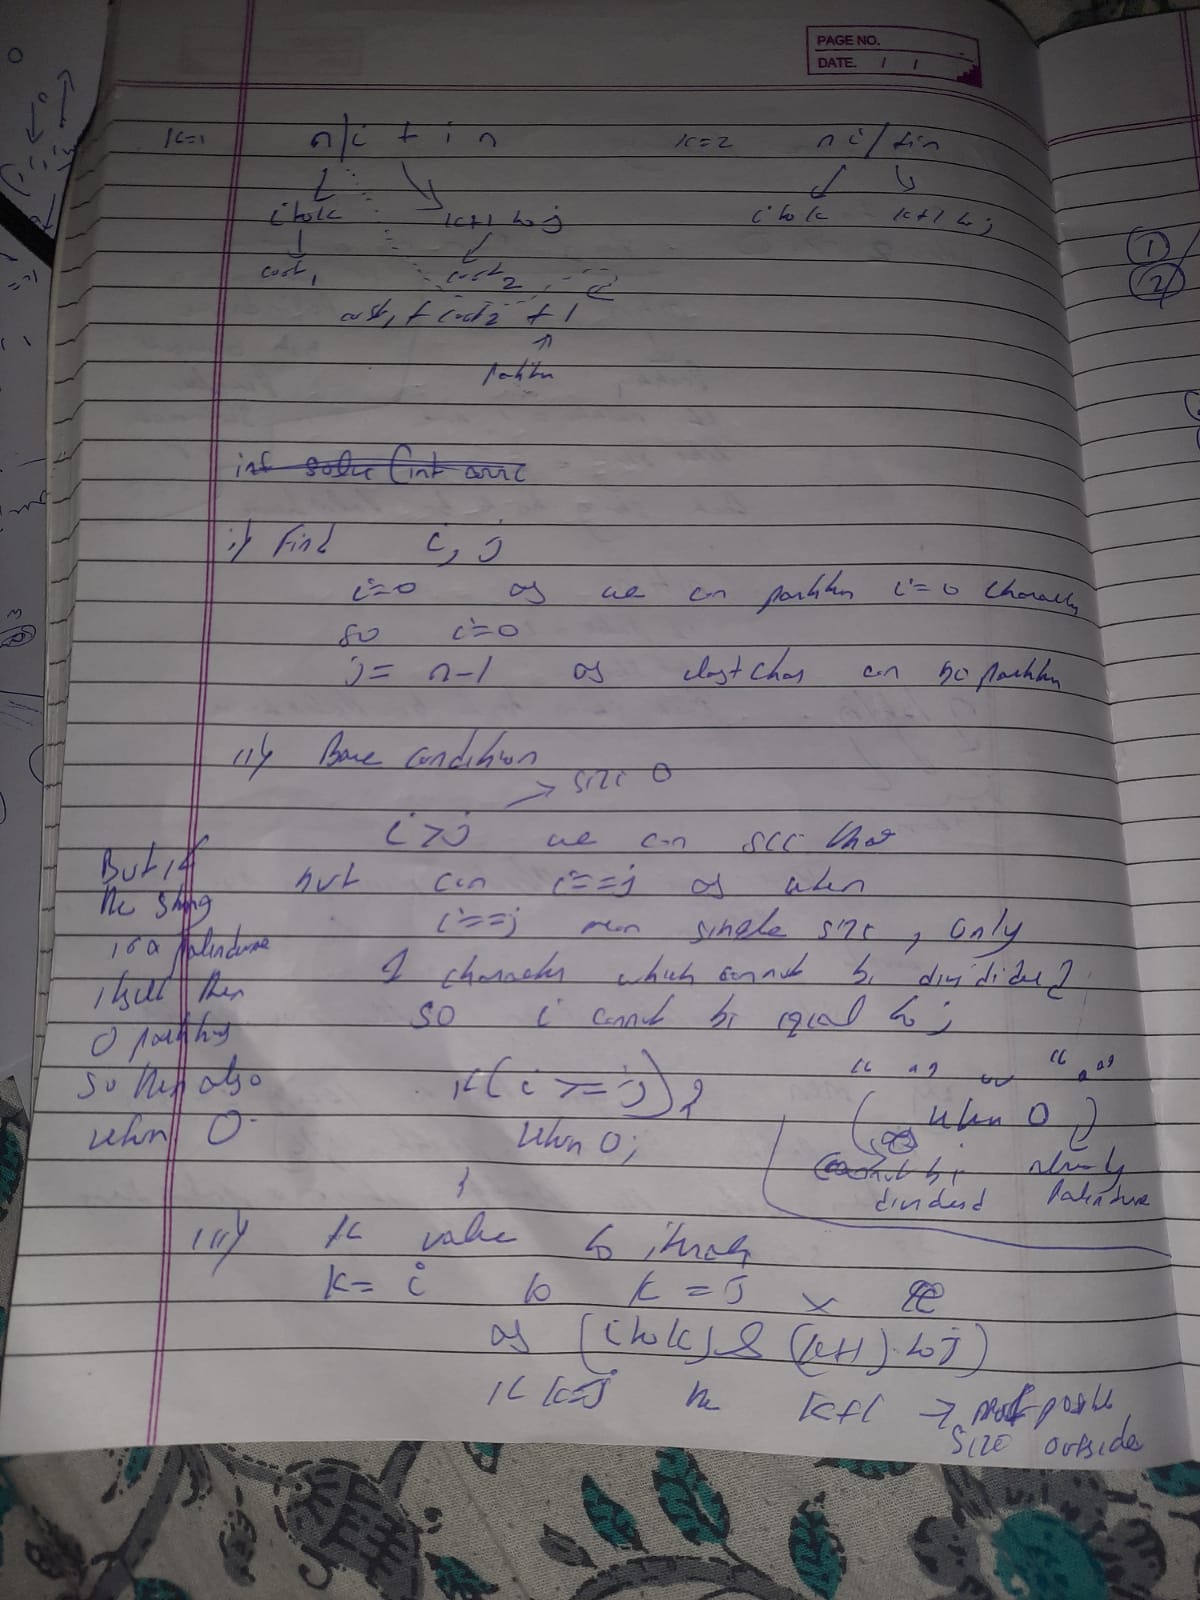 PAGE NO.
DATE. / /
k=1 n/i t i n k=2 n i / tin
i to k k+1 to j i to k k+1 to j
cost1 cost2
cost1 + cost2 + 1
partition
int solve (int arr
i) Find i, j
i=0 as we can partition i=0 character
so i=0
j= n-1 as last char can be partition
ii) Base condition
→ size 0
i>j we can see that
but can i==j as when
i==j mean single size, only
1 character which cannot be divided?
so i cannot be equal to j
if (i >= j) {
return 0;
}
But if
the string
is a palindrome
itself then
0 partitions
so then also
return 0.
" " or "a"
return 0
cannot be already
dividend Palindrome
iii) k value to iterate
k= i to k = j ×
as (i to k) & (k+1) to j)
if k=j the k+1 → not possible
size outside
1
2
3